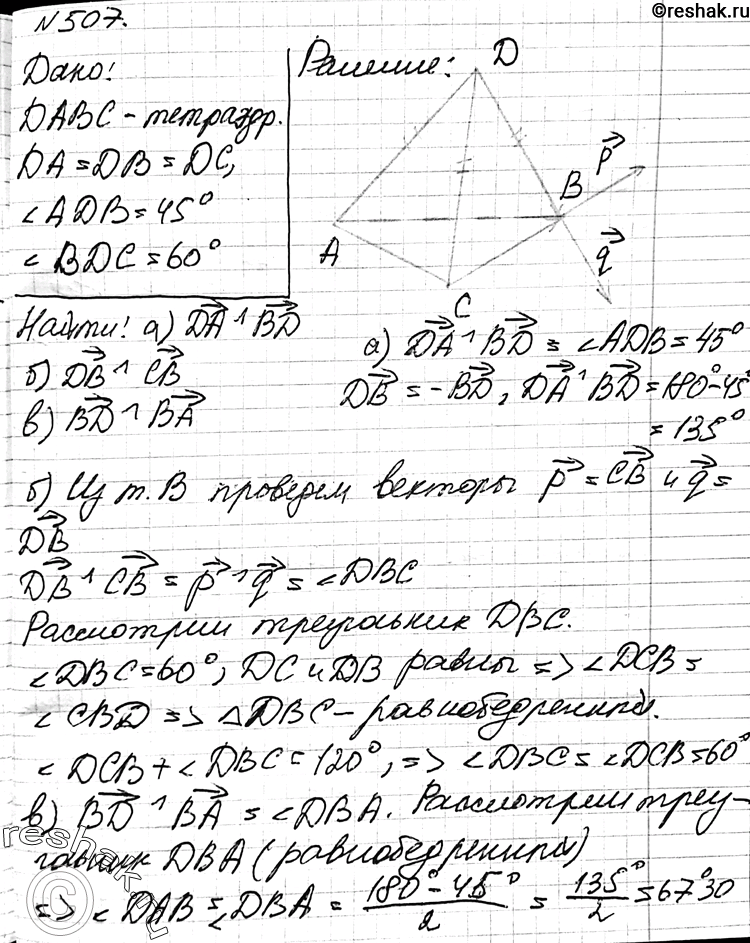 ©reshak.ru
№507.
Дано:
DABC - тетраэдр.
DA = DB = DC,
∠ADB = 45°
∠BDC = 60°
Решение:
D
A
B
C
p⃗
q⃗
Найти: а) DA⃗ ^ BD⃗
б) DB⃗ ^ CB⃗
в) BD⃗ ^ BA⃗
а) DA⃗ ^ BD⃗ = ∠ADB = 45°
DB⃗ = -BD⃗, DA⃗ ^ BD⃗ = 180° - 45°
= 135°
б) Из т. B проведем векторы p⃗ = CB⃗ и q⃗ =
DB⃗
DB⃗ ^ CB⃗ = p⃗ ^ q⃗ = ∠DBC
Рассмотрим треугольник DBC.
∠DBC = 60°, DC и DB равны => ∠DCB =
∠CBD => △DBC - равнобедренный.
∠DCB + ∠DBC = 120°, => ∠DBC = ∠DCB = 60°
в) BD⃗ ^ BA⃗ = ∠DBA. Рассмотрим треу-
гольник DBA (равнобедренный)
=> ∠DAB = ∠DBA = (180° - 45°)/2 = 135°/2 = 67°30
reshak.ru